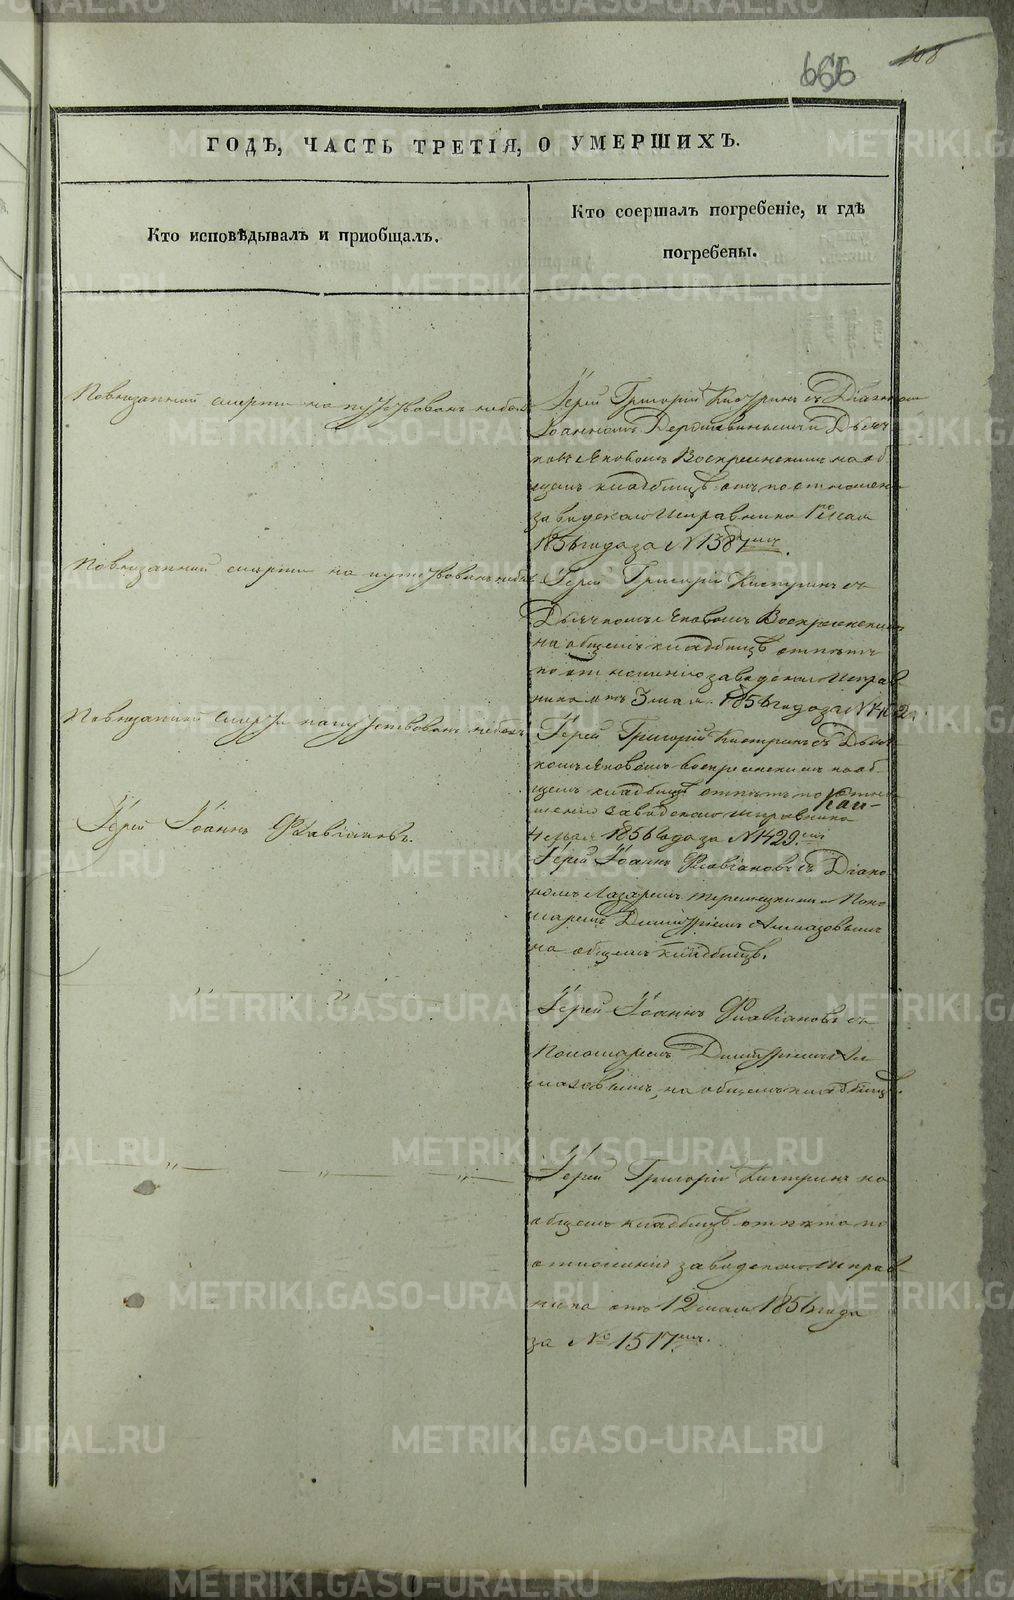 666 108
ГОДѢ, ЧАСТЬ ТРЕТІЯ, О УМЕРШИХЪ.
Кто исповѣдывалъ и приобщалъ.
Кто соершалъ погребеніе, и гдѣ
погребены.
По внезапной смерти напутствованъ небылъ
Іерей Григорій Кистринъ съ Діакономъ
Іоанномъ Державинымъ и Дьяч
комъ Яковомъ Воскресенскимъ на об
щемъ кладбищѣ
заводскаго Исправника 1го мая
1856 года за N 1387мъ.
По внезапной смерти напутствованъ небылъ
Іерей Григорій Кистринъ съ
Дьячкомъ Яковомъ Воскресенскимъ
на общемъ кладбищѣ отпѣтъ
по отношенію заводскаго Исправ
ника отъ 3 мая 1856 года за N
По внезапной смерти напутствованъ небылъ
Іерей Григорій Кистринъ съ Дьяч
комъ Яковомъ Воскресенскимъ на об
щемъ кладбищѣ отпѣтъ по отно
шенію заводскаго Исправника
4 мая 1856 года за N 1429мъ
Іерей Іоаннъ Флавіановъ.
Іерей Іоаннъ Флавіановъ съ Діако
номъ Лазаремъ и Поно
маремъ Димитріемъ Алмазовымъ
на общемъ кладбищѣ.
" "
Іерей Іоаннъ Флавіановъ съ
Пономаремъ Димитріемъ Ал
мазовымъ, на общемъ кладбищѣ.
" " "
Іерей Григорій Кистринъ на
общемъ кладбищѣ отпѣта по
отношенію заводскаго Исправ
ника отъ 12 мая 1856 года
за № 1517мъ.
METRIKI.GASO-URAL.RU